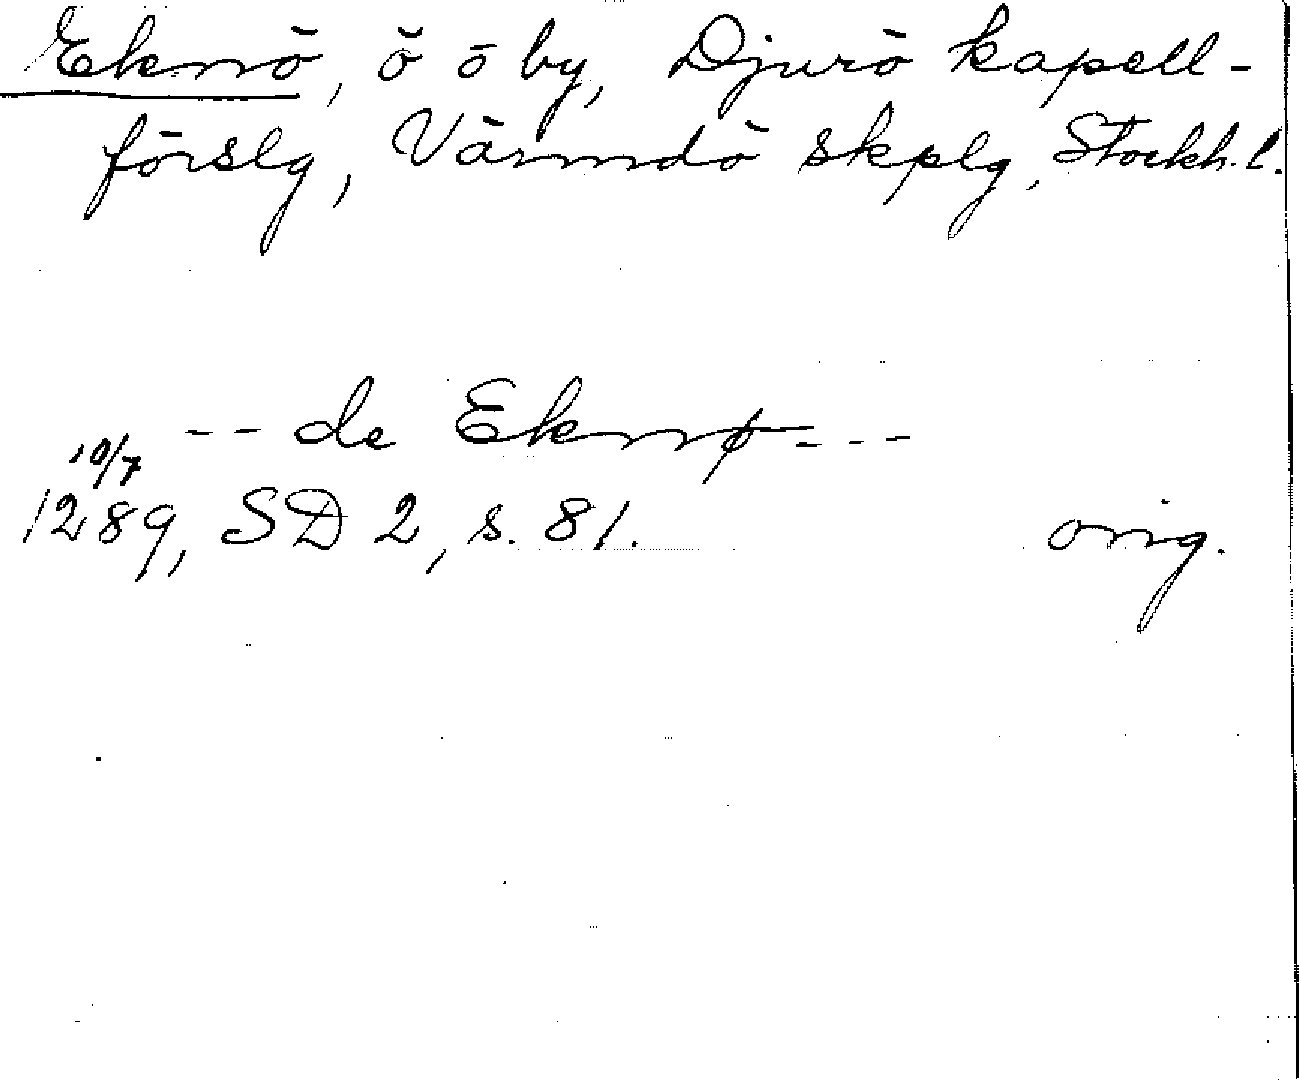 Eknö, ö o by, Djurö kapell-
förslg, Värmdö skplg, Stockh. l.
-- de Eknø ---
10/7
1289, SD 2, s. 81. orig.